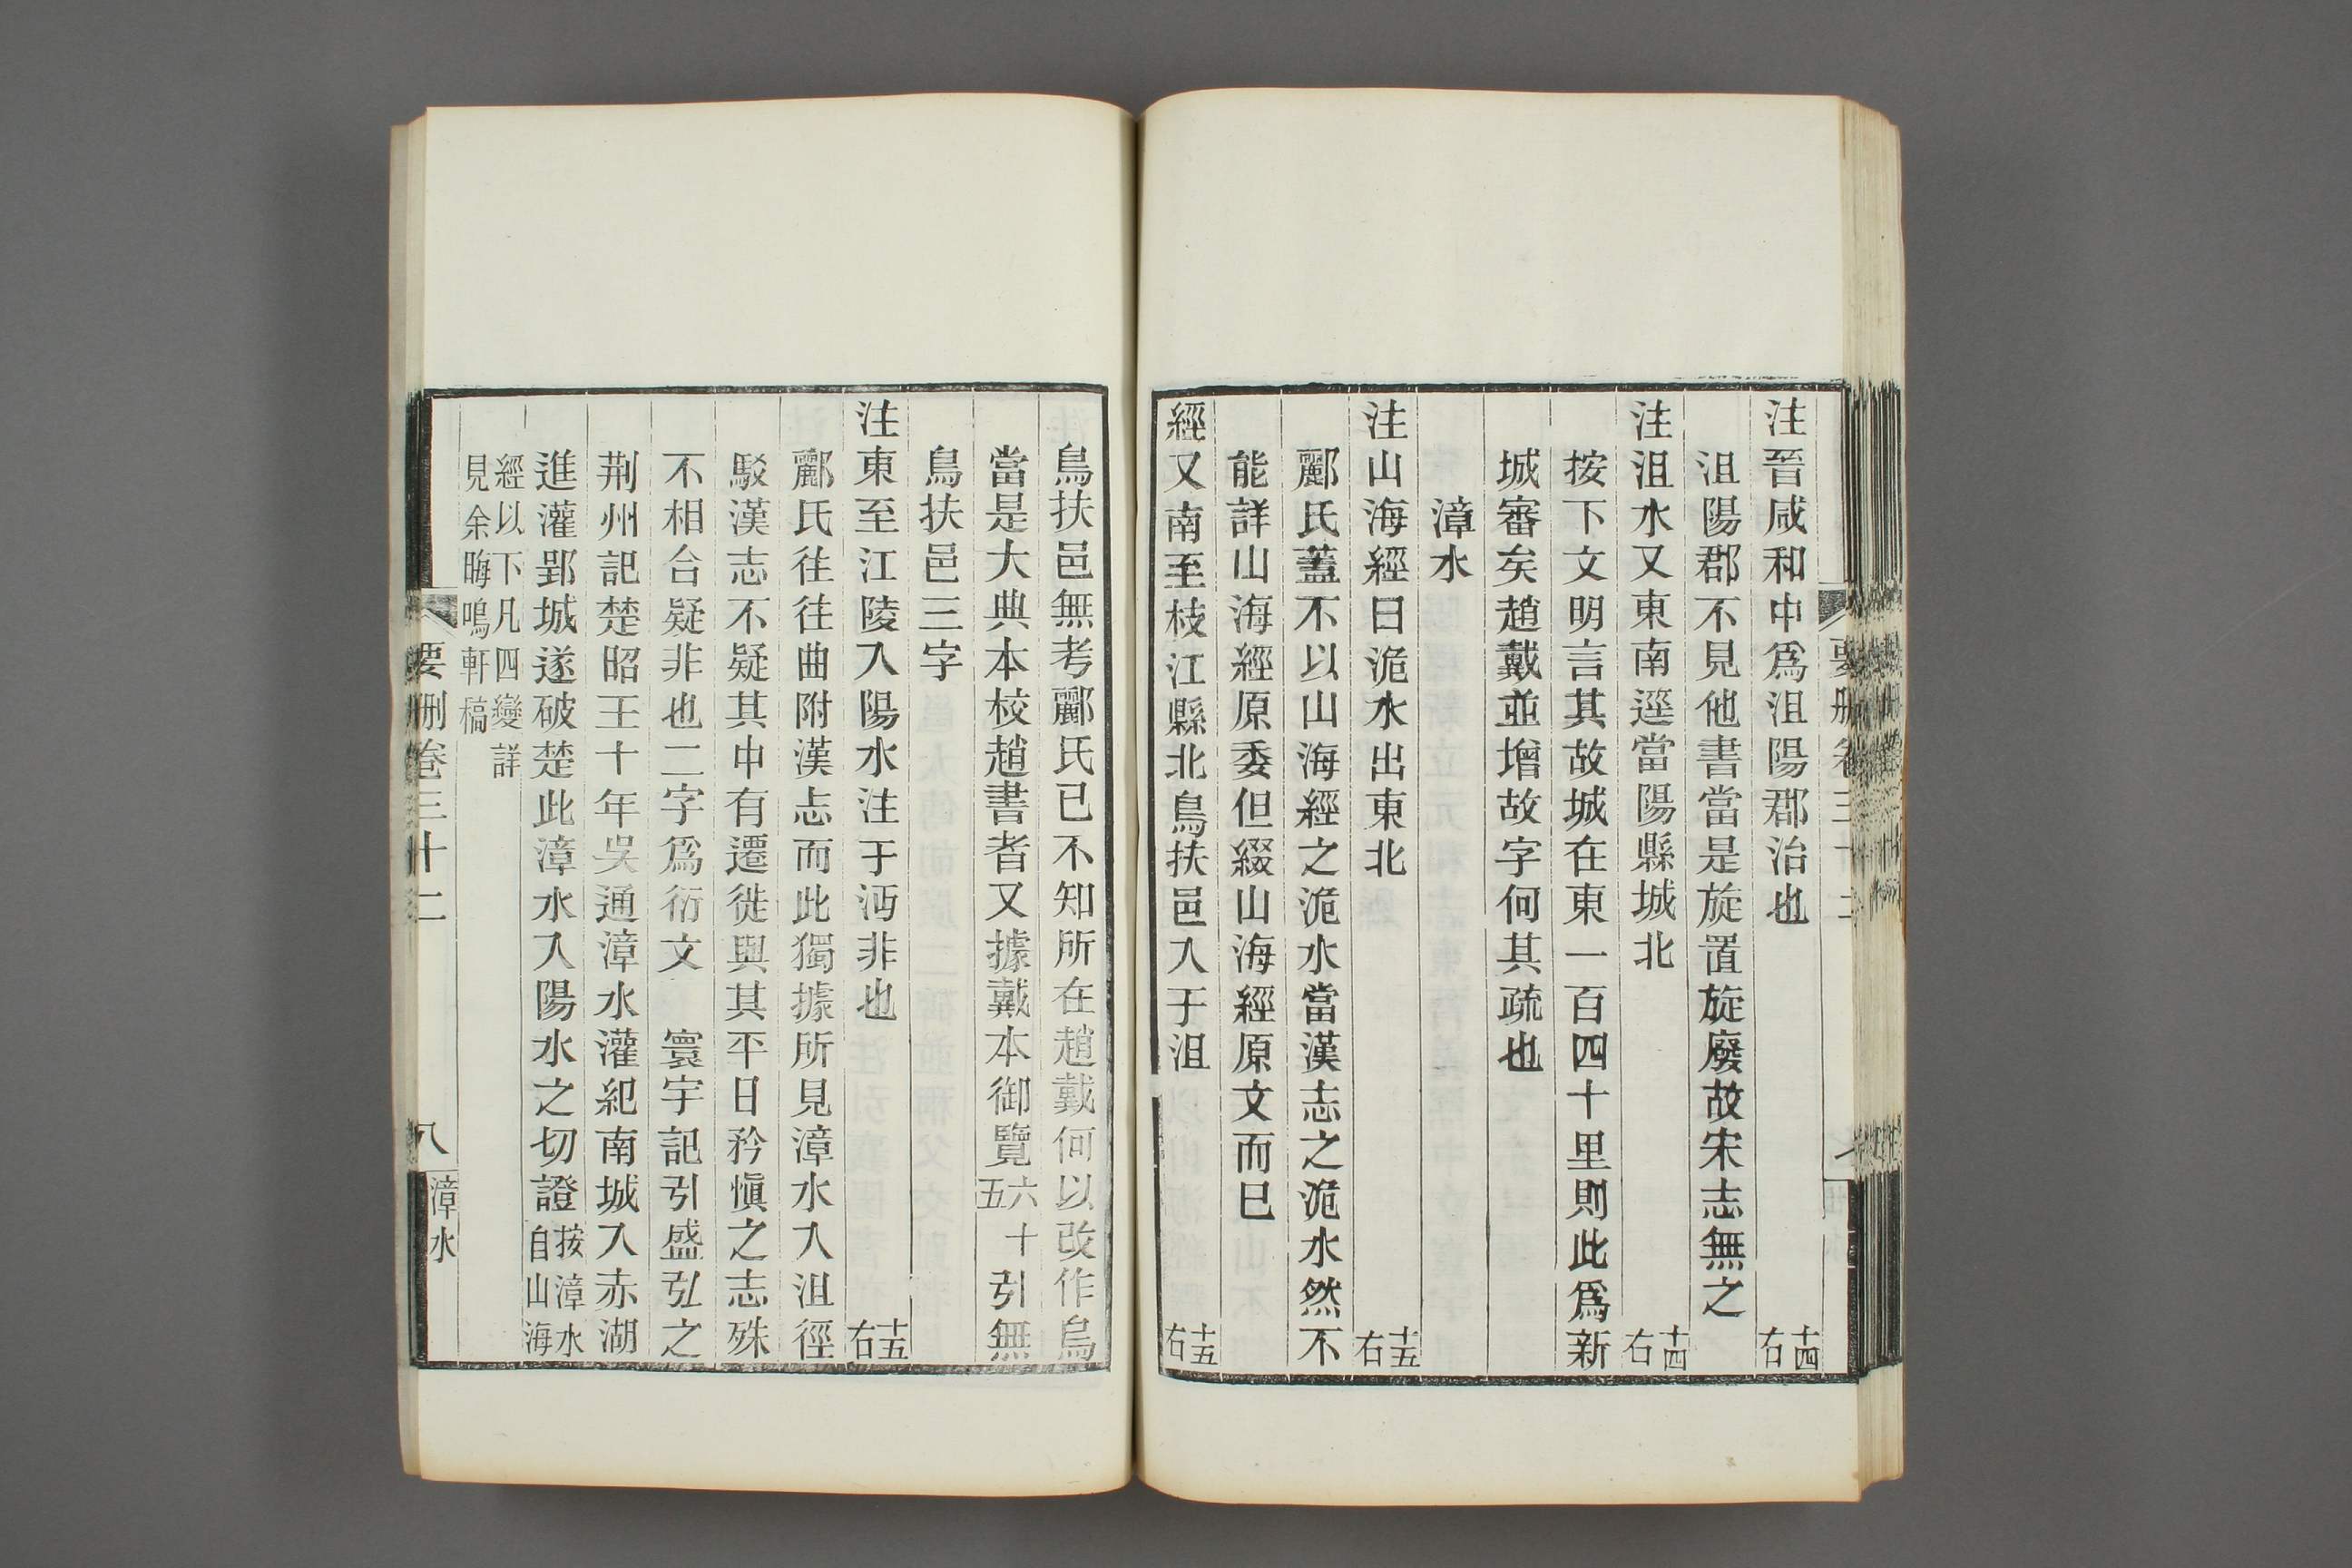 注晉咸和中爲沮陽郡治也十四右
沮陽郡不見他書當是旋置旋廢故宋志無之
注沮水又東南逕當陽縣城北十四右
按下文明言其故城在東一百四十里則此爲新
城審矣趙戴並增故字何其疏也
漳水
注山海經曰洈水出東北十五右
酈氏蓋不以山海經之洈水當漢志之洈水然不
能詳山海經原委但綴山海經原文而已
經又南至枝江縣北烏扶邑入于沮十五右
烏扶邑無考酈氏已不知所在趙戴何以改作烏
當是大典本校趙書者又據戴本御覽六十五引無
烏扶邑三字
注東至江陵入陽水注于沔非也十五右
酈氏往往曲附漢志而此獨據所見漳水入沮徑
駁漢志不疑其中有遷徙與其平日矜愼之志殊
不相合疑非也二字爲衍文　寰宇記引盛弘之
荆州記楚昭王十年吳通漳水灌紀南城入赤湖
進灌郢城遂破楚此漳水入陽水之切證按漳水自山海
經以下凡四變詳見余晦鳴軒稿
要刪卷三十二
八
漳水